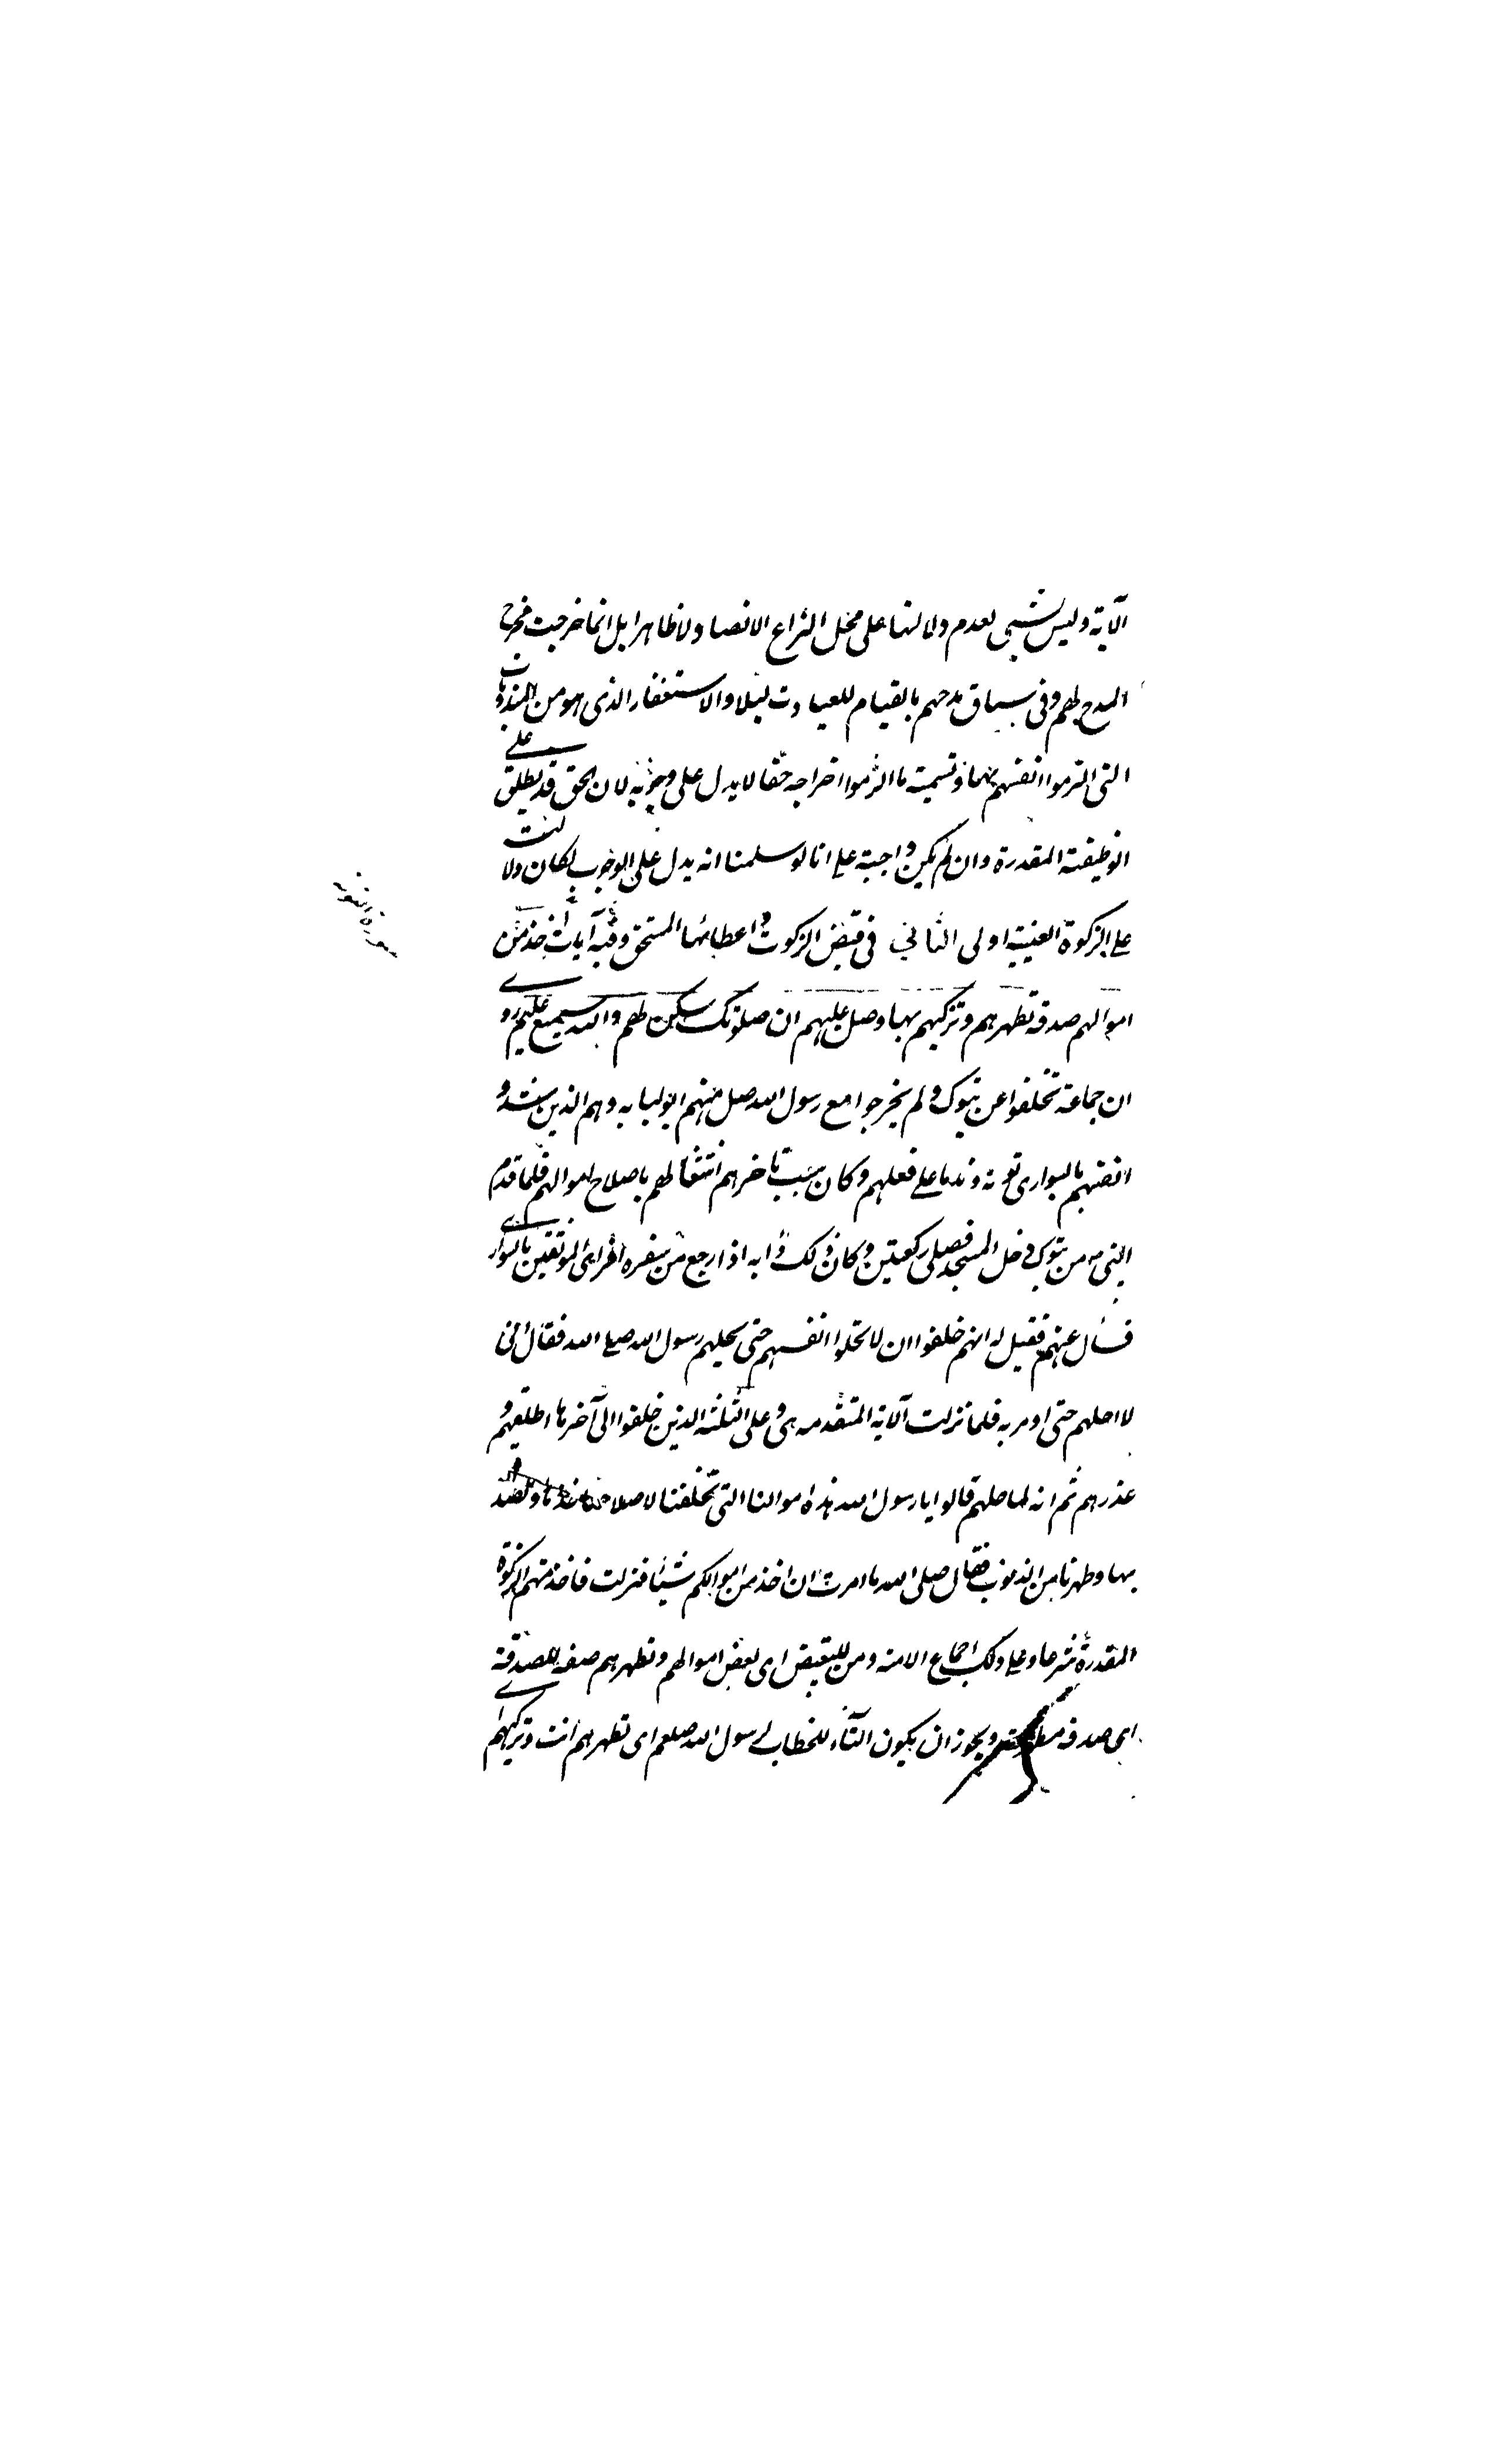 الآية وليس بشيء لعدم دلالتها على محل النزاع لا نصا ولا ظاهرا بل انما خرجت مخرج
المدح لهم وفي سياق مدحهم بالقيام للعبادت ليلا والاستغفار الذي هو من المندوبات
التي التزموا انفسهم بهما وتسمية ما التزموا اخراجه حقا لا يدل على وجوبه لان الحق قد يطلق على
الوظيفة المقدرة وان لم يكن واجبة على انا لو سلمنا انه يدل على الوجوب لكان دلالته
على الزكوة العينية اولى الثاني في قبض الزكوت واعطائها المستحق وفيه آيات خذ من
اموالهم صدقة تطهرهم وتزكيهم بها وصل عليهم ان صلوتك سكن لهم والله سميع عليم روى
ان جماعة تخلفوا عن تبوك ولم يخرجوا مع رسول الله صل منهم ابو لبابه وهم الذين شدوا
انفسهم بالسوارى توبة وندما على فعلهم وكان سبب تاخرهم اشتغالهم باصلاح اموالهم فلما قدم
النبي من تبوك دخل المسجد فصلى ركعتين وكان ذلك دابه اذا رجع من سفره فراى الموثقين بالسوارى
فسأل عنهم فقيل له انهم حلفوا ان لا تحلوا انفسهم حتى يحليهم رسول الله صلى الله فقال اني
لا احلهم حتى اومر به فلما نزلت الآية المتقدمه هي وعلى الثلثه الذين خلفوا الى آخرها اطلقهم و
عذرهم ثم انه لما حلهم قالوا يا رسول الله هذه اموالنا التي تخلفنا لاصلاحها خذها وتصدق
بها وطهرنا من الذنوب فقال صلى الله ما امرت ان اخذ من اموالكم شيئا فنزلت فاخذ منهم الزكوة
المقدرة شرعا وعلى ذلك اجماع الامة ومن للتبعيض اى بعض اموالهم وتطهرهم صفه للصدقة
اى صدقة مطهرة ويجوز ان يكون التاء للخطاب لرسول الله صلعم اى تطهرهم انت وتزكيهم